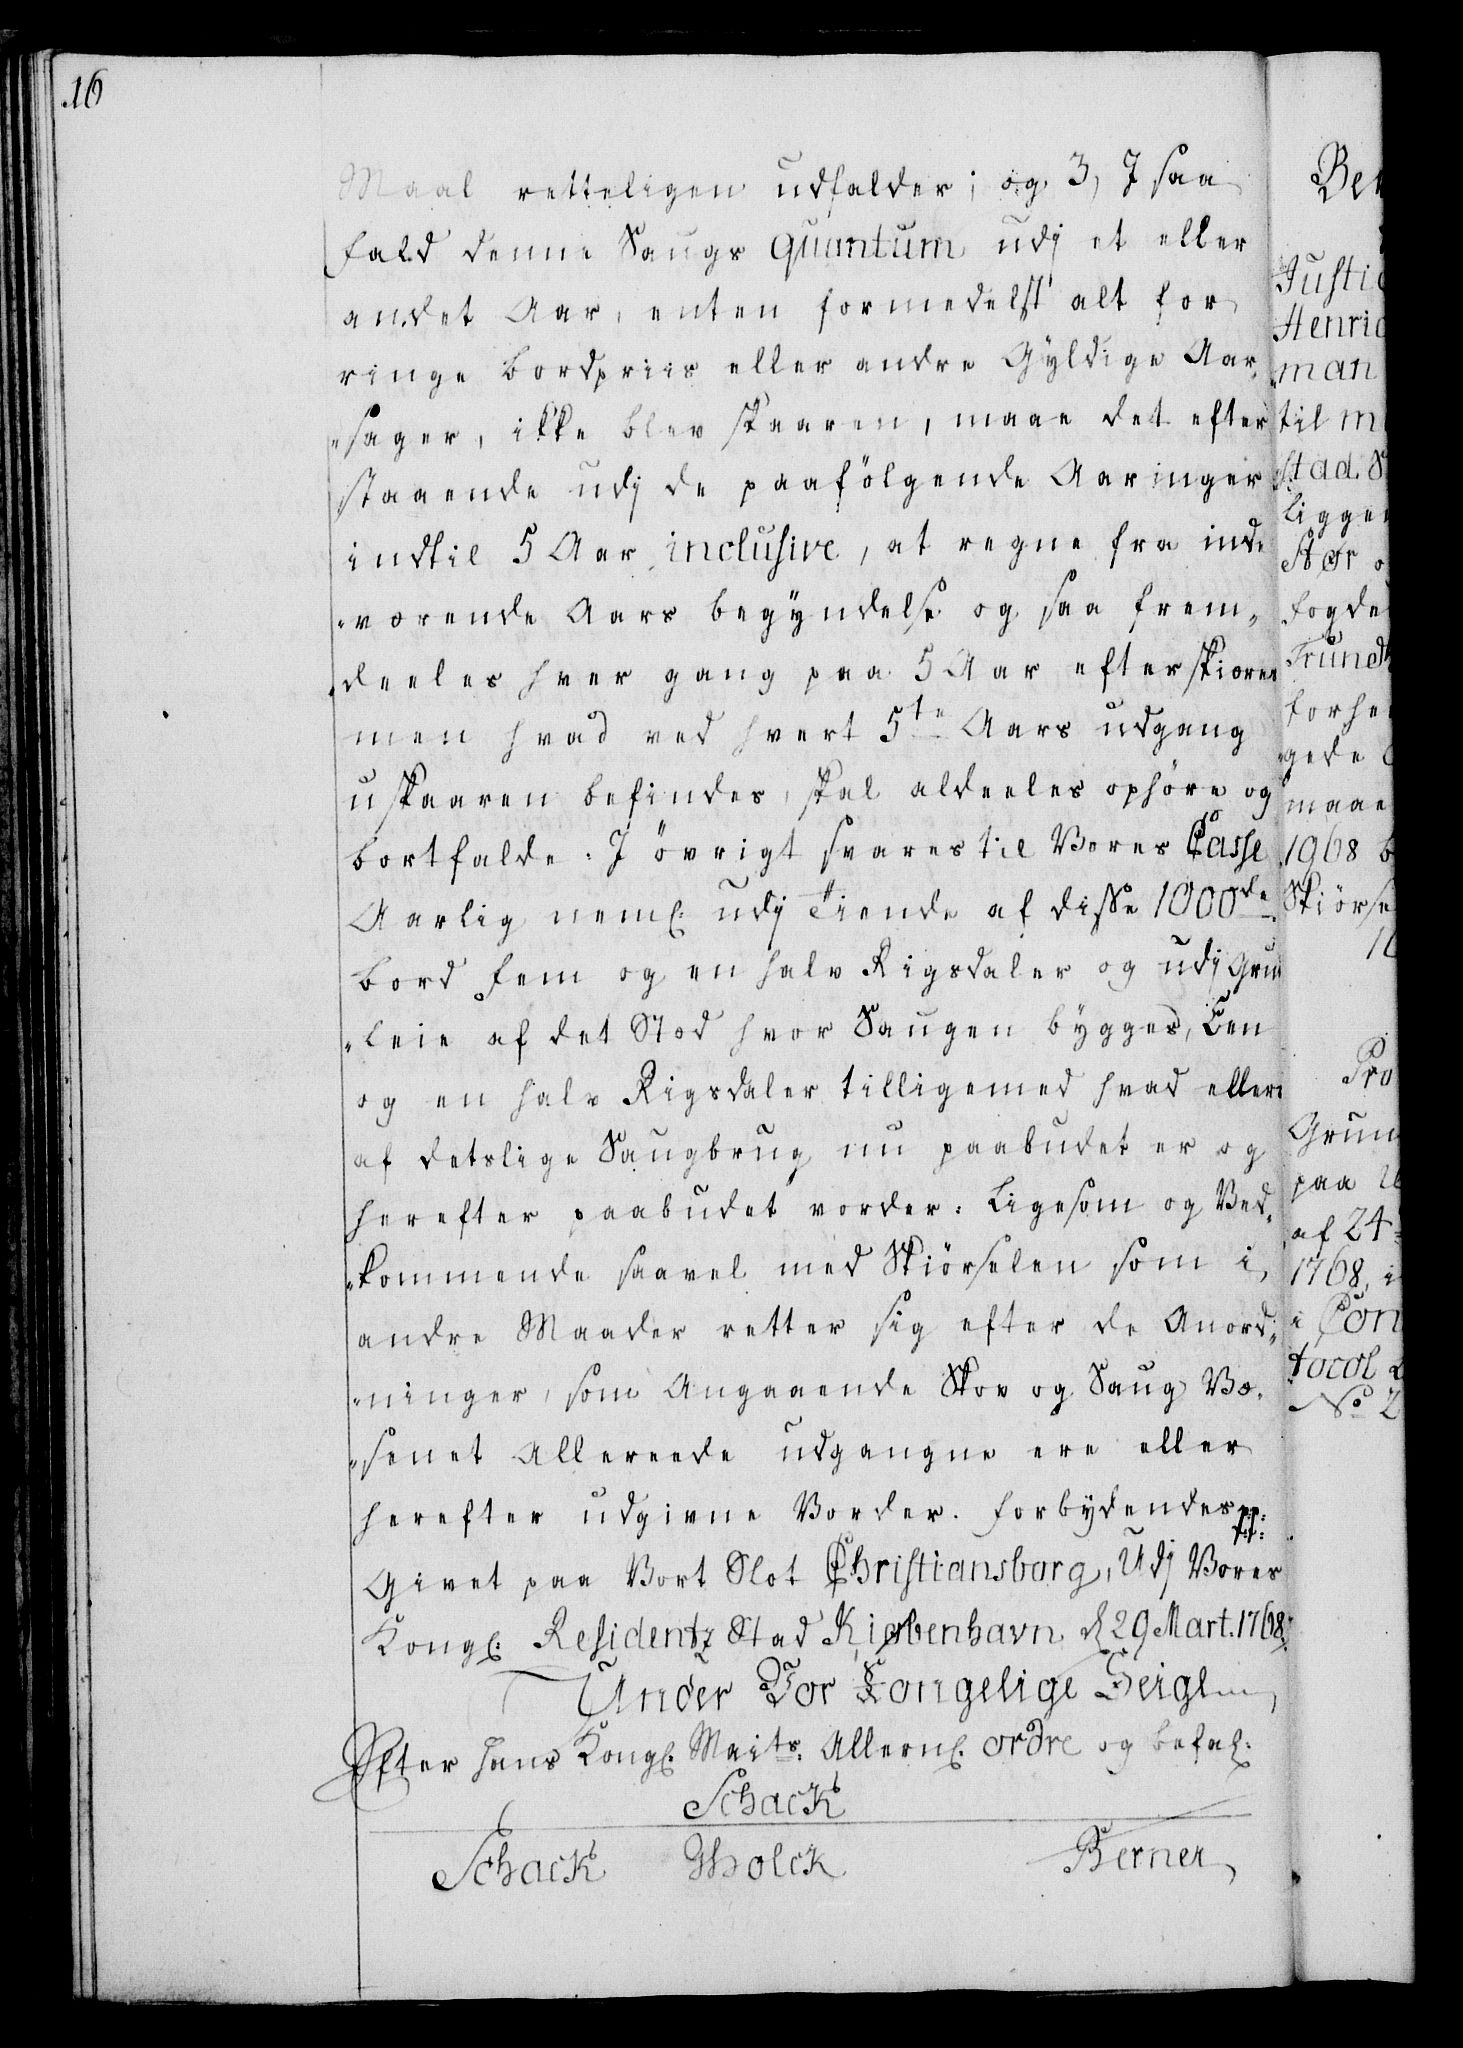 16
Maal retteligen udfalder; og 3, I saa
fald denne Saugs quantum udj et eller
andet Aar, enten formedelst alt for
ringe bordpriis eller andre Gyldige Aar„
„sager, ikke blev skaaren, maae det efter
staaende udj de paafölgende Aaringer
indtil 5 Aar inclusive, at regne fra inde
„værende Aars begÿndelse og saa frem„
„deeles hver gang paa 5 Aar efterskiæres
men hvad ved hvert 5te Aars udgang
uskaaren befindes, skal aldeeles ophöre og
bortfalde. I övrigt svares til Vores Casse
Aarlig neml: udj Tiende af disse 1000de
bord fem og en halv Rigsdaler og udj Grun
„leie af det Stæd hvor Saugen bÿgges, Een
og en halv Rigsdaler tilligemed hvad ellers
af detslige Saugbrug nu paabudet er og
herefter paabudet vorder: Ligesom og Ved„
„kommende saavel med Skiörselen som i
andre Maader retter sig efter de Anord„
„ninger, som Angaaende Skov og Saug Væ„
„senet Allereede udgangne ere eller
herefter udgivne Vorder. forbÿdendes p.p:
Givet paa Vort Slot Christiansborg, Udj Vores
Kongl: Residentz Stad Kiøbenhavn d 29 Mart. 1768.
Under Vor Kongelige Zeigl
Efter Hans Kongl: Maits: Allernl: ordre og befal:
Schack
Schack Gholck Berner
Justic
Henric
„man
til m
stad S
ligge
Stør o
fogde
Trundh
forhe
„gede
maae
1968 b
Skiörse
Pro
Grun
paa
af 24
1768, i
i Con
tocol
No 2